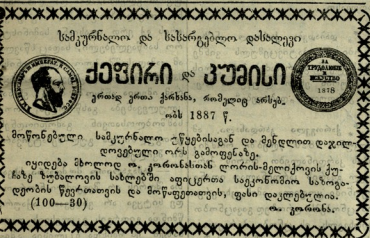 სამკურნალო და სასარგებლო დასალევი
ქეფირი და კუმისი
ერთად ერთი ქარხანა, რომელიც არსებ.
ობს 1887 წ.
მოწონებული სამკურნალო უწყებისაგან და მენდლით დაჯილ-
დოვებული ორს გამოფენაზე.
იყიდება მხოლოდ ო. კორონასთან ლორის-მელიქოვის ქუ-
ჩაზე ზუბალოვის სახლებში აფიცერთა საეკონომიო საზოგა-
დოების წევრთათვის და მოწაფეთათვის, ფასი დაკლებულია.
(100—30) ო. კორონა.
ЗА
ТРУДОЛЮБІЕ
И
1878